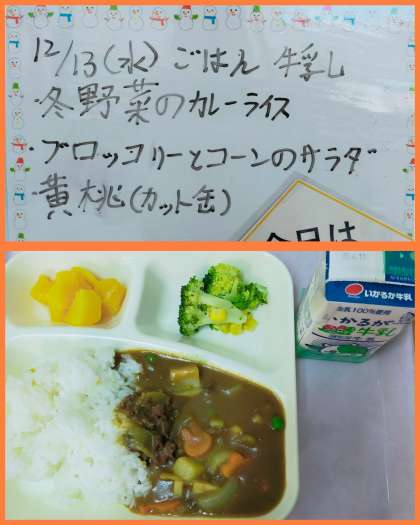 12/13(水) ごはん 牛乳
・冬野菜のカレーライス
・ブロッコリーとコーンのサラダ
・黄桃(カット缶)
今日は
いかるが牛乳
生乳100%使用
いかるが
牛乳